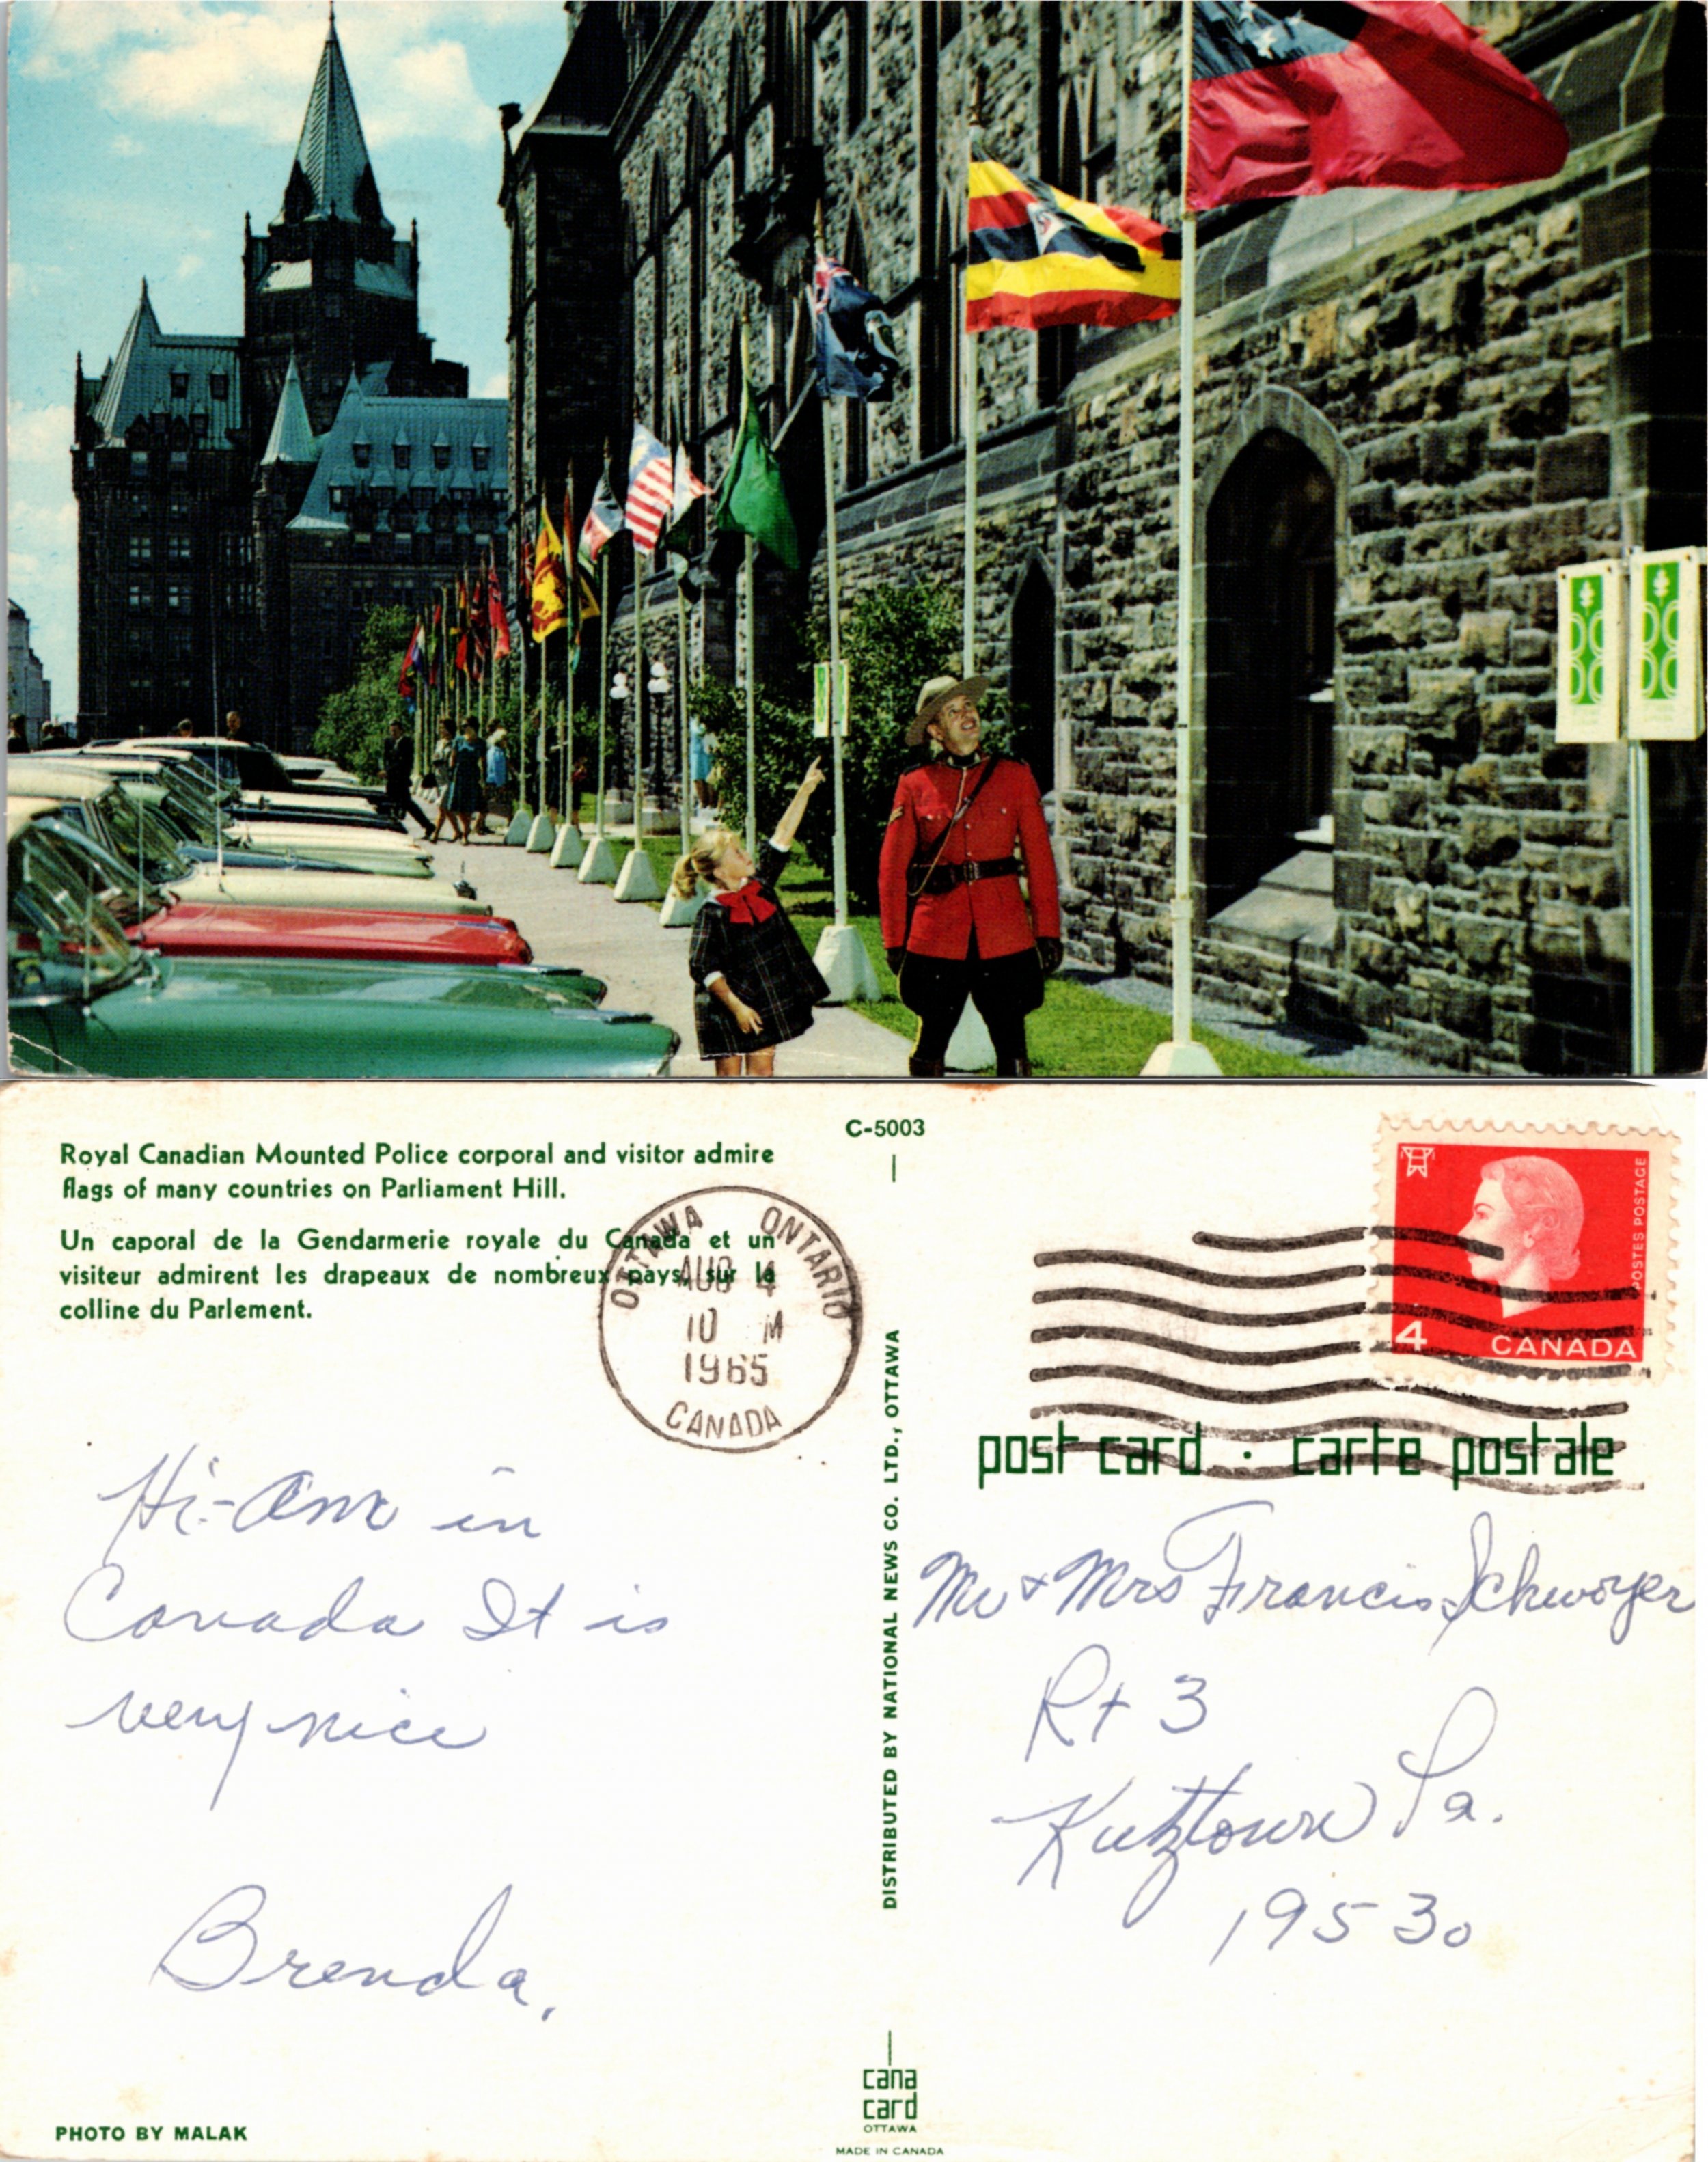 Royal Canadian Mounted Police corporal and visitor admire
flags of many countries on Parliament Hill.
Un caporal de la Gendarmerie royale du Canada et un
visiteur admirent les drapeaux de nombreux pays, sur la
colline du Parlement.
C-5003
OTTAWA ONTARIO
AUG 4
10 M
1965
CANADA
POSTES POSTAGE
4 CANADA
post card · carte postale
Hi-Am in
Canada It is
very nice
Brenda,
DISTRIBUTED BY NATIONAL NEWS CO. LTD., OTTAWA
Mr & Mrs Francis Schwoyer
Rt 3
Kutztown Pa.
19530
PHOTO BY MALAK
cana
card
OTTAWA
MADE IN CANADA